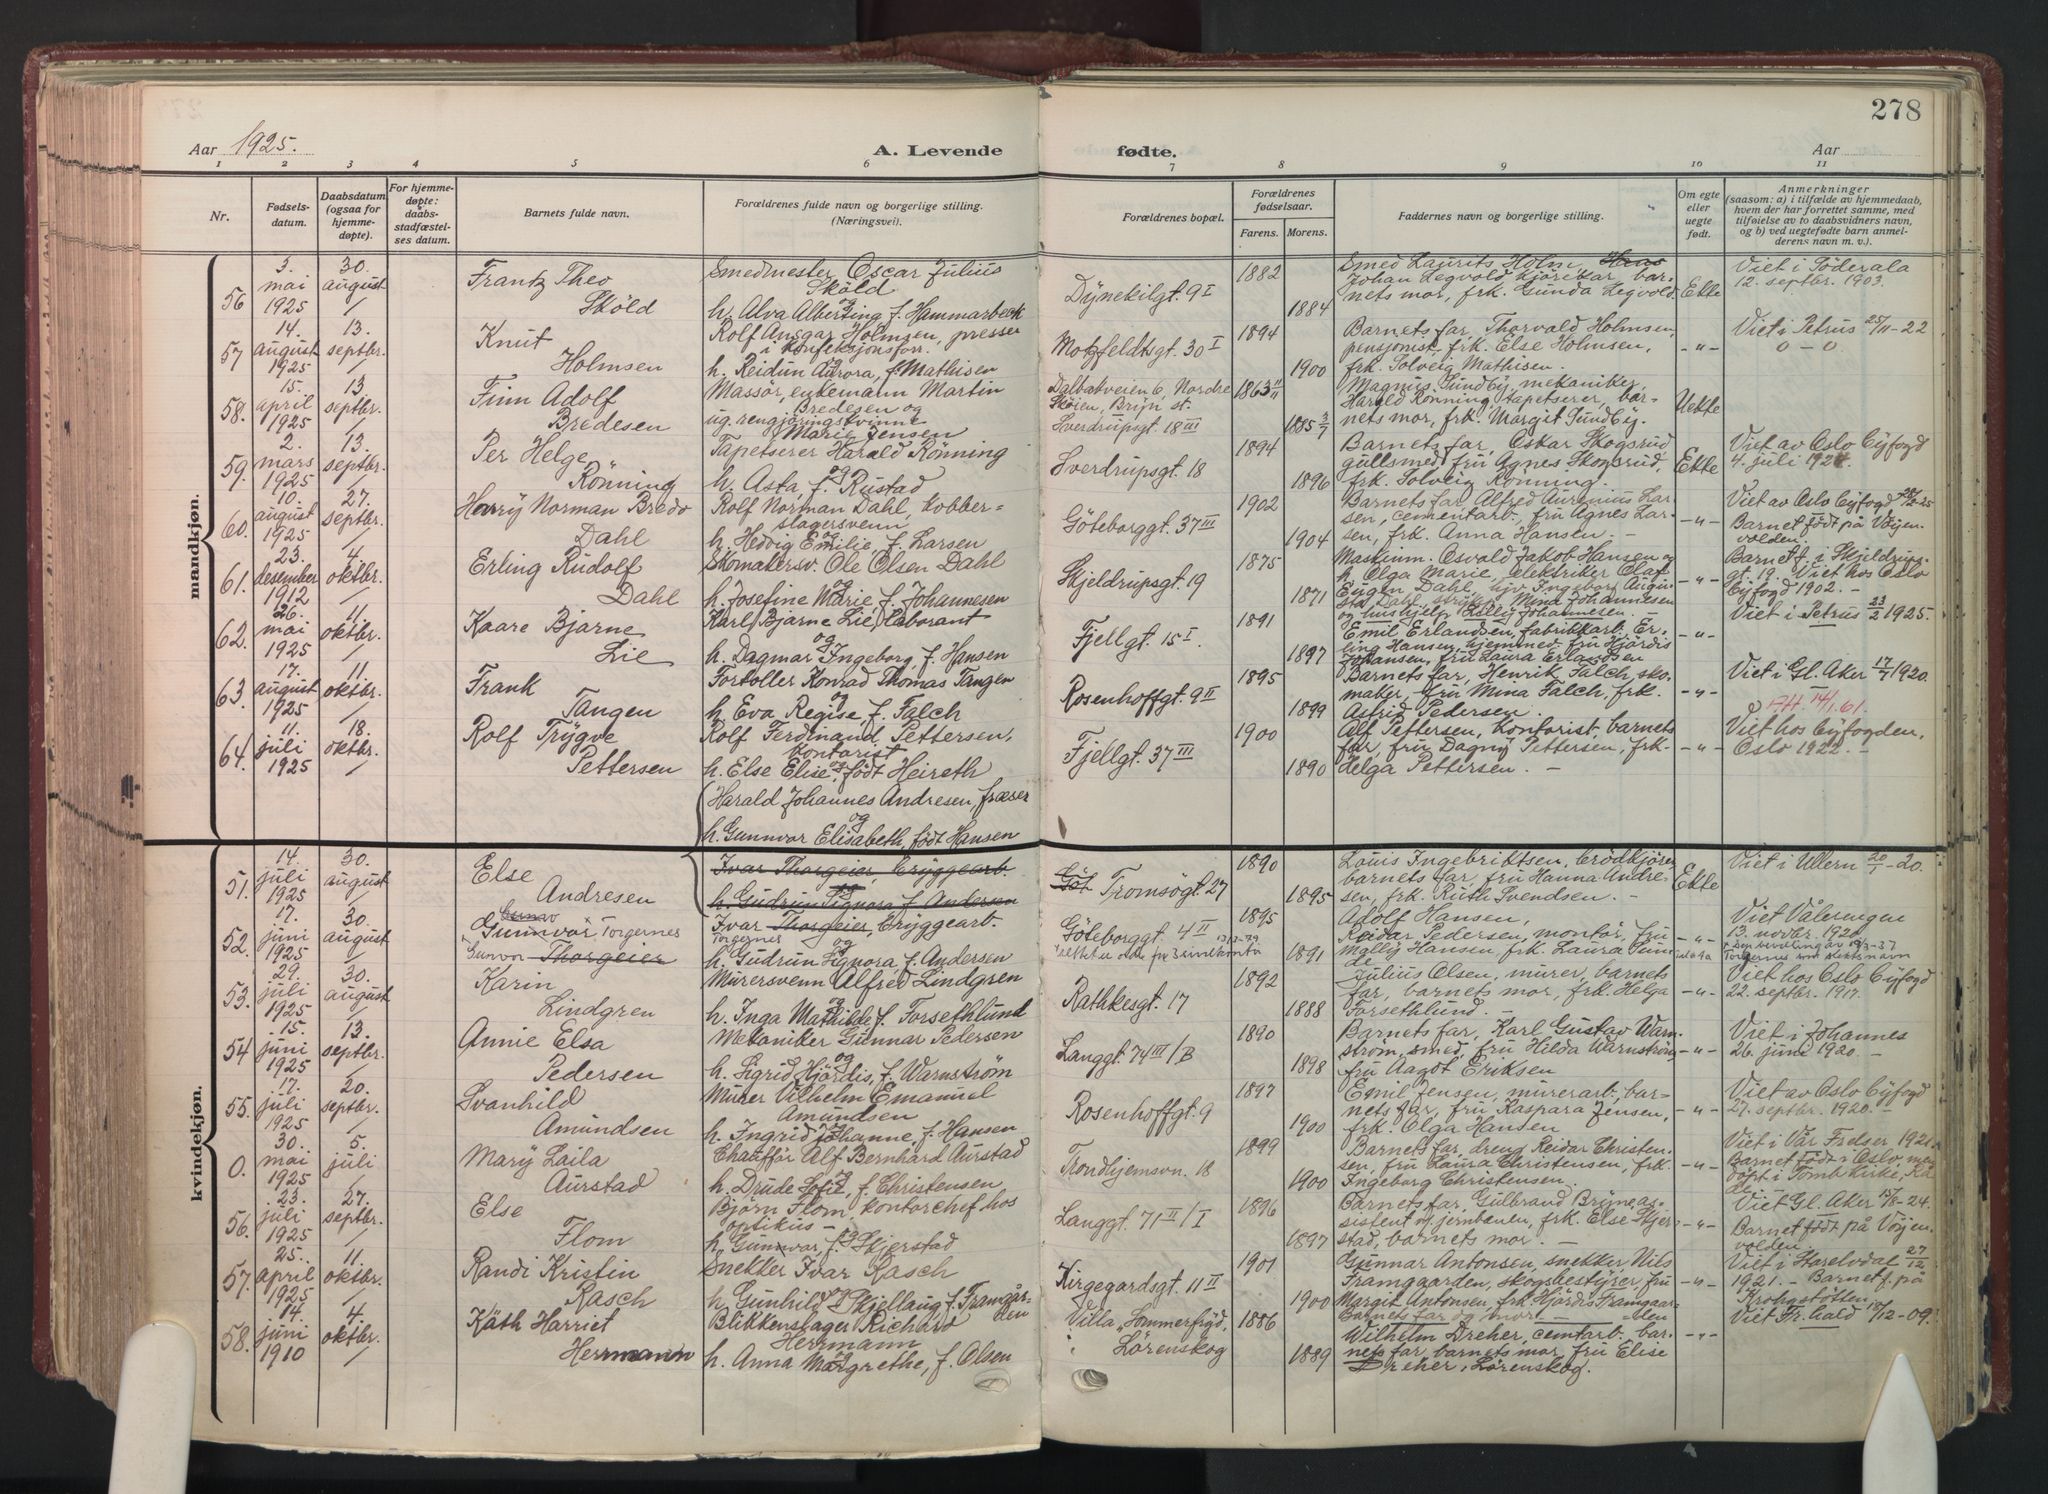 278
Aar 1925.
A. Levende
fødte.
Aar
1 2 3 4 5 6 7 8 9 10 11
Nr.
Fødsels-
datum.
Daabsdatum
(ogsaa for
hjemme-
døpte).
For hjemme-
døpte:
daabs-
stadfæstel-
ses datum.
Barnets fulde navn.
Forældrenes fulde navn og borgerlige stilling.
(Næringsvei).
Forældrenes bopæl.
Forældrenes
fødselsaar.
Farens. Morens.
Faddernes navn og borgerlige stilling.
Om egte
eller
uegte
født.
Anmerkninger
(saasom: a) i tilfælde av hjemmedaab,
hvem der har forrettet samme, med
tilføielse av to daabsvidners navn,
og b) ved uegtefødte barn anmel-
derens navn m. v.).
mandkjøn.
56
3.
mai
1925
30.
august
Frantz Theo
Sköld
Smedmester Oscar Julius
Sköld
og
h. Alva Albertina f. Hammarbeck
Dýnekilgt. 9 I
1882
1884
Smed Laurits Holm
Johan Legvold kjørekar, bar-
nets mor, frk. Gunda Legvold.
Ekte
Viet i Söderala
12. septbr. 1903.
57
14.
august
1925
13.
septbr.
Knut
Holmsen
Rolf Ansgar Holmsen, presser
i konfeksjonsforr.
og
h. Reidun Aurora, f. Mathisen
Motzfeldtsgt. 30 I
1894
1900
Barnets far, Thorvald Holmsen,
pensjonist, frk. Else Holmsen,
frk. Solveig Mathisen.
-"-
Viet i Petrus 25/11-22
0 - 0.
58.
15.
april
1925
13.
septbr.
Finn Adolf
Bredesen
Massør, enkemann Martin
Bredesen og
ug. rengjøringskvinne
Marie Jensen
Dalbakveien 6, Nordre
Skøien, Brýn st.
Sverdrupsgt. 18 III
1863
1885
Magnus Sundbý, mekaniker,
Harald Rønning tapetserer, bar-
nets mor, frk. Margit Sundbý.
Uekte
59.
2.
mars
1925
13.
septbr.
Per Helge
Rönning
Tapetserer Harald Rönning
og
h. Asta, f. Rustad
Sverdrupsgt. 18
1894
1896
Barnets far, Oskar Skogsrud
gullsmed, fru Agnes Skogsrud,
frk. Solveig Rönning.
Ekte
Viet av Oslo Býfogd
4. juli 1924.
60.
10.
august
1925
27.
septbr.
Harrý Norman Bredo
Dahl
Rolf Norman Dahl, kobber-
slagersvenn
og
h. Hedvig Emilie, f. Larsen
Göteborggt. 37 III
1902
1904
Barnets far Alfred Aurenius Lar-
sen, cementarb., fru Agnes Lar-
sen, frk. Anna Hansen. -
-"-
Viet av Oslo Býfogd
Barnet født på Vøyen-
volden.
61.
23.
desember
1912
4.
oktbr.
Erling Rudolf
Dahl
Skomakersv. Ole Olsen Dahl
og
h. Josefine Marie f. Johannesen
Skjeldrupsgt. 19
1875
1871
Maskinm. Osvald Jakob Hansen og
h. Olga Marie, elektriker Olaf
Eugen Dahl, Ingeborg Augus-
ta Dahl, Mina Johannesen
-"-
Barnet f. i Skjeldrups-
gt. 19. Viet hos Oslo
Býfogd 1902. -
62.
26.
mai
1925
11.
oktbr.
Kaare Bjarne
Lie
Karl Bjarne Lie, laborant
og
h. Dagmar Ingeborg, f. Hansen
Fjellgt. 15 I
1891
1897
Emil Erlandsen, fabrikkarb. Er-
ling Hansen, hjemmed. fru Hjördis
Johansen, fru Laura Erlandsen
-"-
Viet i Petrus 23/2 1925.
63.
17.
august
1925
11.
oktbr.
Frank
Tangen
Fortoller Konrad Thomas Tangen
og
h. Eva Regise, f. Falch
Rosenhoffgt. 9 II
1895
1899
Barnets far, Henrik Falch, sko-
maker, fru Mina Falch, frk.
Astrid Pedersen.
-"-
Viet i Gl. Aker 17/7 1920.
14/1.61.
64.
11.
juli
1925
18.
oktbr.
Rolf Trýgve
Pettersen
Rolf Ferdinand Pettersen,
kontorist
og
h. Else Elise, født Heireth
Fjellgt. 37 III
1900
1890
Alf Pettersen, kontorist, barnets
far, fru Dagný Pettersen, frk.
Helga Pettersen. -
-"-
Viet hos Býfogden,
Oslo 1922. -
kvindekjøn.
Harald Johannes Andresen, fræser
og
h. Gunnvor Elisabeth, født Hansen
51.
14.
juli
1925
30.
august
Else
Andresen
Ivar Thorgeier, brýggearb.
h. Gudrun Signora f. Andersen
Göt Tromsøgt. 27
1890
1895
Louis Ingebriktsen, brödkjører
barnets far, fru Hanna Andre-
sen, frk. Ruth Svendsen. -
Ekte
Viet i Ullern 20/1-20.
52.
17.
juni
1925
30.
august
Gunnvor Torgernes
Gunvor Thorgeier
Ivar Thorgeier, brýggearb.
Torgernes og
h. Gudrun Signora f. Andersen
Göteborggt. 4 II
1895
1891
Adolf Hansen,
Reidar Pedersen, montör, fru
Mallý Hansen, frk. Laura Sun-
de
-"-
Viet Vålerengen
13. novbr. 1920
Torgernes som slektsnavn
53.
29.
juli
1925
30.
august
Karin
Lindgren
Murersvenn Alfred Lindgren
og
h. Inga Mathilde f. Forsethlund
Rathkesgt. 17
1892
1888
Julius Olsen, murer, barnets
far, barnets mor, frk. Helga
Forsethlund. -
-"-
Viet hos Oslo Býfogd
22. septbr. 1917.
54
15.
juni
1925
13.
septbr.
Annie Elsa
Pedersen
Mekaniker Gunnar Pedersen
og
h. Sigrid Hjördis, f. Warnström
Langgt. 74 III/B
1890
1898
Barnets far, Karl Gustav Warn-
ström, smed, fru Hilda Warnström
fru Aagot Eriksen
-"-
Viet i Johannes
26. juni 1920. -
55.
17.
juli
1925
20.
septbr.
Svanhild
Amundsen
Murer Vilhelm Emanuel
Amundsen
og
h. Ingrid Johanne, f. Hansen
Rosenhoffgt. 9
1897
1900
Emil Jensen, murerarb., bar-
nets far, fru Kaspara Jensen,
frk. Olga Hansen
-"-
Viet av Oslo Býfogd
27. septbr. 1920. -
0.
30.
mai
1925
5.
juli
Marý Laila
Aurstad
Chauffør Alf Bernhard Aurstad
og
h. Drude Sofie, f. Christensen
Trondhjemsvn. 18
1899
1900
Barnets far, dreng Reidar Christen-
sen, fru Laura Christensen, frk.
Ingeborg Christensen.
-"-
Viet i Vår Frelser 1921.
Barnet født i Oslo, men
döpt i Tomb kirke, Rå-
de
56.
23.
juli
1925
27.
septbr.
Else
Flom
Björn Flom, kontorchef hos
optikus -
og
h. Gunnvor, f. Skjerstad
Langgt. 71 II/I
1896
1897
Barnets far, Gulbrand Brýne, as-
sistent v. jernbanen, frk. Else Skjer-
stad, barnets mor. -
-"-
Viet Gl. Aker 15/8-24.
Barnet født på Vöyen-
volden.
57.
25.
april
1925
11.
oktbr.
Randi Kristin
Rasch
Snekker Ivar Rasch
og
h. Gunhild Skjellaug f. Framgår-
den
Kirgegardsgt. 11 II
1901
1900
Gunnar Antonsen, snekker, Nils
Framgaarden, skogsbestýrer, fru
Margit Antonsen, frk. Hjördis Framgaar-
den
Barnets far og mor. -
-"-
Viet i Hareisdal 27/12
1921. - Barnet f. på
Krohgstötten.
58.
14.
juni
1910
4.
oktbr.
Käth Harriet
Herrmann
Blikkenslager Richard
Herrmann
og
h. Anna Margrethe, f. Olsen
Villa "Sommerfrýd,
i Lörenskog
1886
1889
Wilhelm Dreher, cemtarb., bar-
nets far, barnets mor, fru Elise
Dreher, Lörenskog.
-"-
Viet Fr. hald 12/12-09.